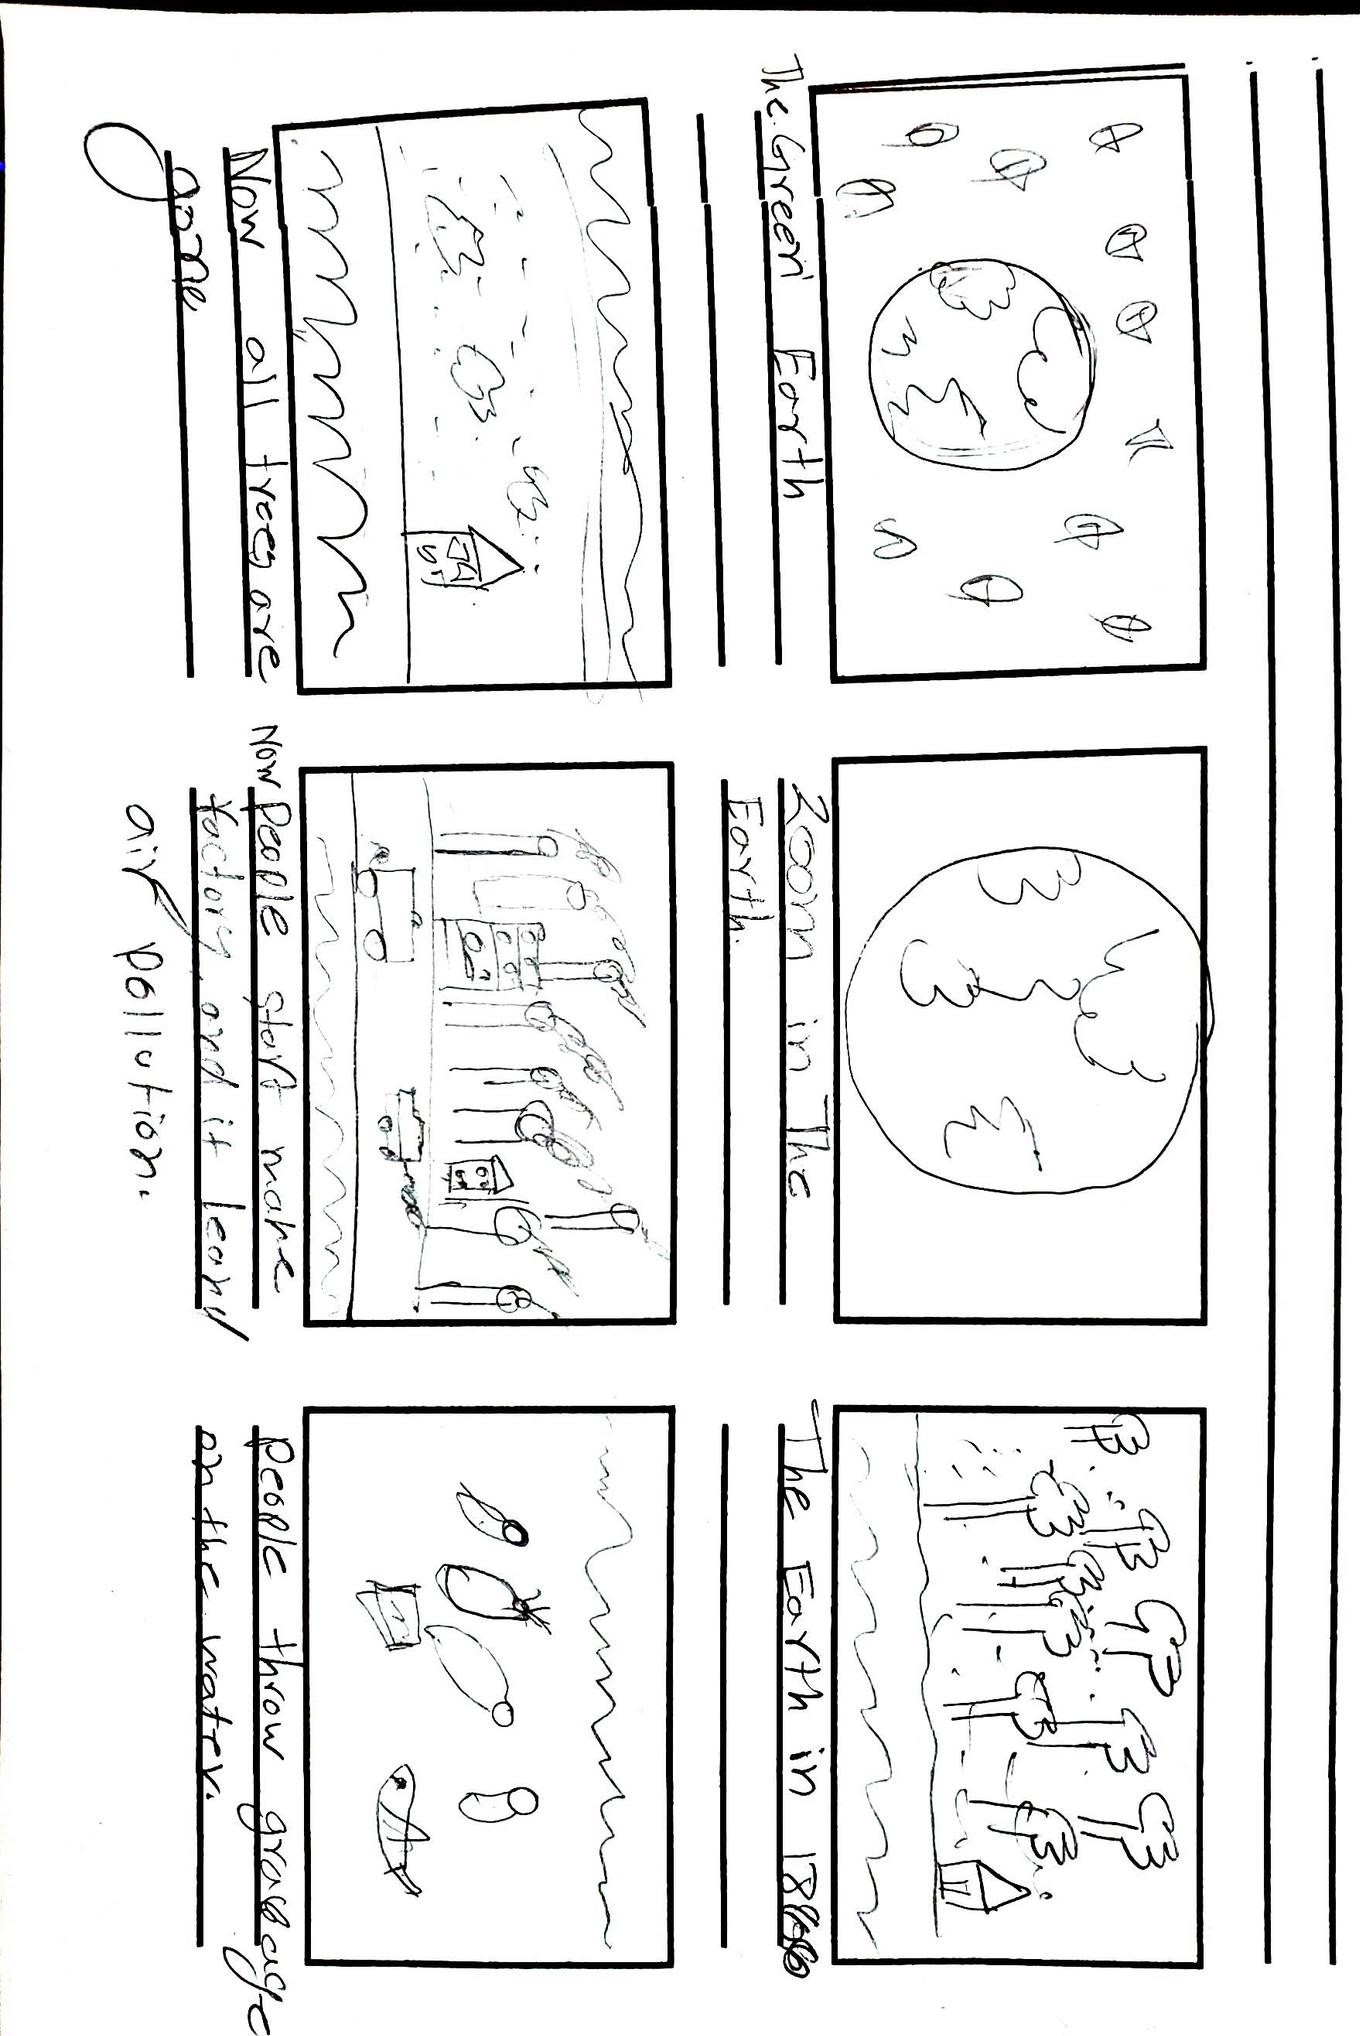 The Green Earth
Zoom in The
Earth.
The Earth in
Now all trees are
gone
Now People start make
factory and it leany
air pollution.
People throw grabbage
on the water.